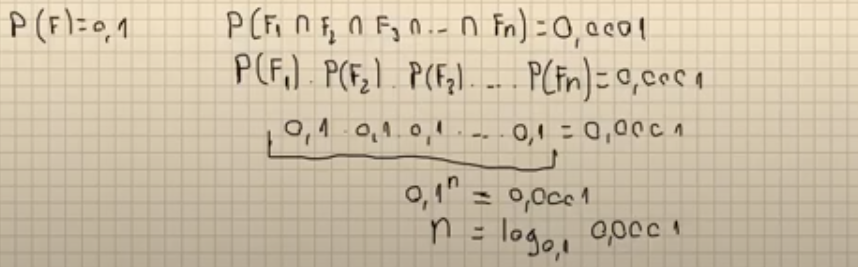 P(F)=0,1 P(F₁ ∩ F₂ ∩ F₃ ∩ ... ∩ Fn)=0,0001
P(F₁) . P(F₂) . P(F₃) . ... . P(Fn)=0,0001
0,1 . 0,1 . 0,1 . ... . 0,1 = 0,0001
0,1ⁿ = 0,0001
n = log₀,₁ 0,0001